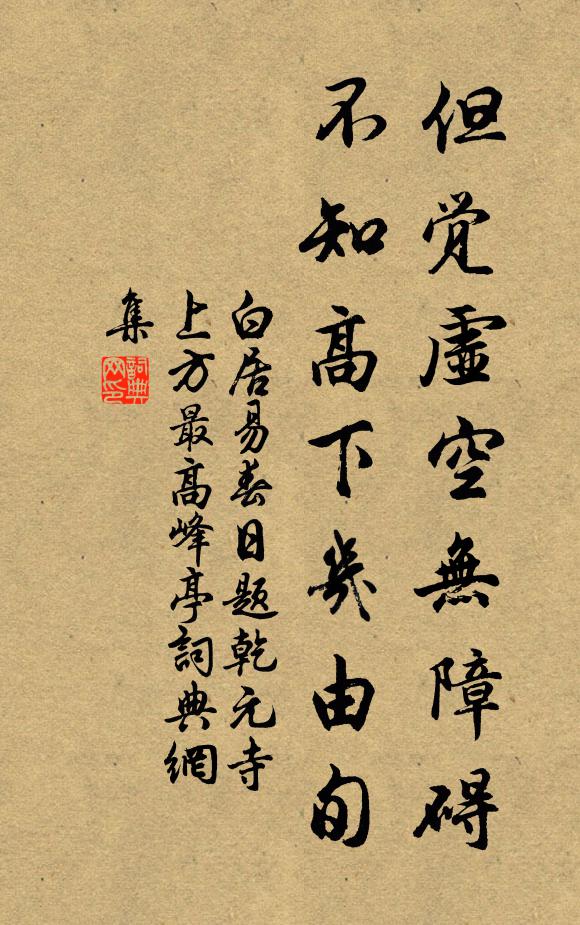 但觉虛空無障碍
不知高下幾由旬
白居易春日题乾元寺
上方最高峰亭詞典網
集
詞典
网印